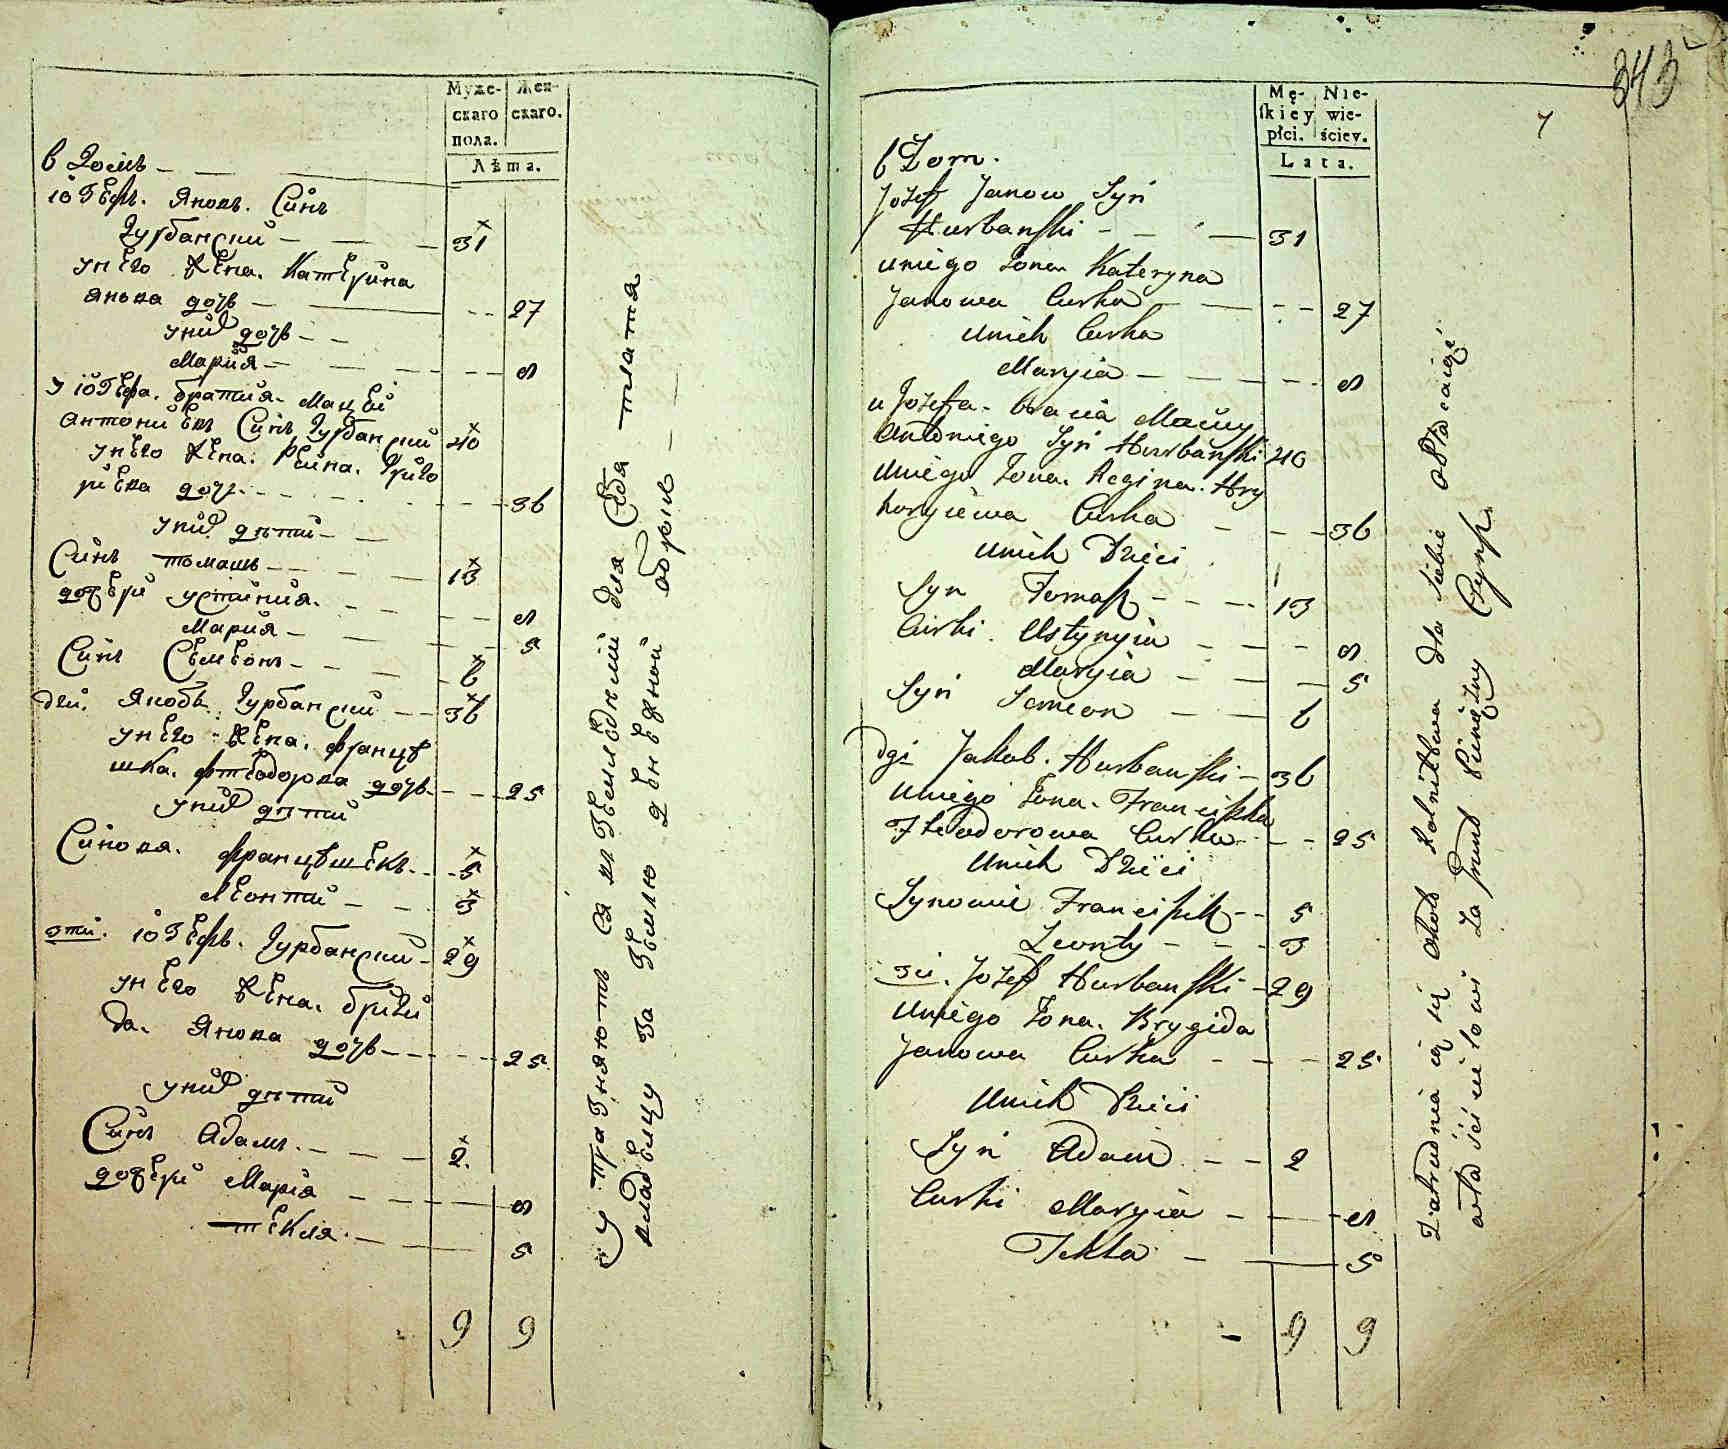 Муже-
скаго
пола.
Жен-
скаго.
Лѣта.
в Домѣ
іозефъ. Яновъ. Синъ
Гурбанский 31
у него жена. Катерина
Янова дочь 27
у них дочь
Мария 8
у іозефа. братия. Мацей
Антониевъ Синъ Гурбанский 40
у него жена. Реина. Григо
риева дочь 36
у них дети
Синъ томашъ 13
дочери устиния. 8
Мария 5
Синъ Семеонъ 6
Якобъ Гурбанский 36
у него жена. францѣ
шка. фтеодорова дочь 25
у них дети
Синовя. францѣшекъ 5
Леонтий 3
3тій. іозефъ. Гурбанский 29
у него жена. бриги
да. Янова дочь 25
у них дети
Синъ Адамъ 2
дочери Мария 8
текля 5
9 9
для себя платя
владелцу за землю денежной оброк
345
7
Mę-
skiey
płci.
Nie-
wie-
ściey.
Lata.
6 Dom.
Jozef Janow Syn
Hurbanski 31
uniego Zona Kateryna
Janowa Curka 27
unich Curka
Maryia 8
u Jozefa. bracia Maciey
Antoniego Syn Hurbanski 40
uniego Zona. Regina. Hry
horyiewa Curka 36
unich Dzieci
Syn Tomasz 13
Curki Ustynyia 8
Maryia 5
Syn Semeon 6
Dgi Jakob. Hurbanski 36
uniego Zona. Franciszka
Fteodorowa Curka 25
unich Dzieci
Synowie Franciszek 5
Leonty 3
3ci. Jozef Hurbanski 29
uniego Zona. Brygida
Janowa Curka 25
unich Dzieci
Syn Adam 2
Curki Maryia 8
Tekla 5
9 9
Zatrudniaią się około Rolnictwa dla siebie opłacaiąc
własciicielowi za Grunt Pieniężny Czynsz